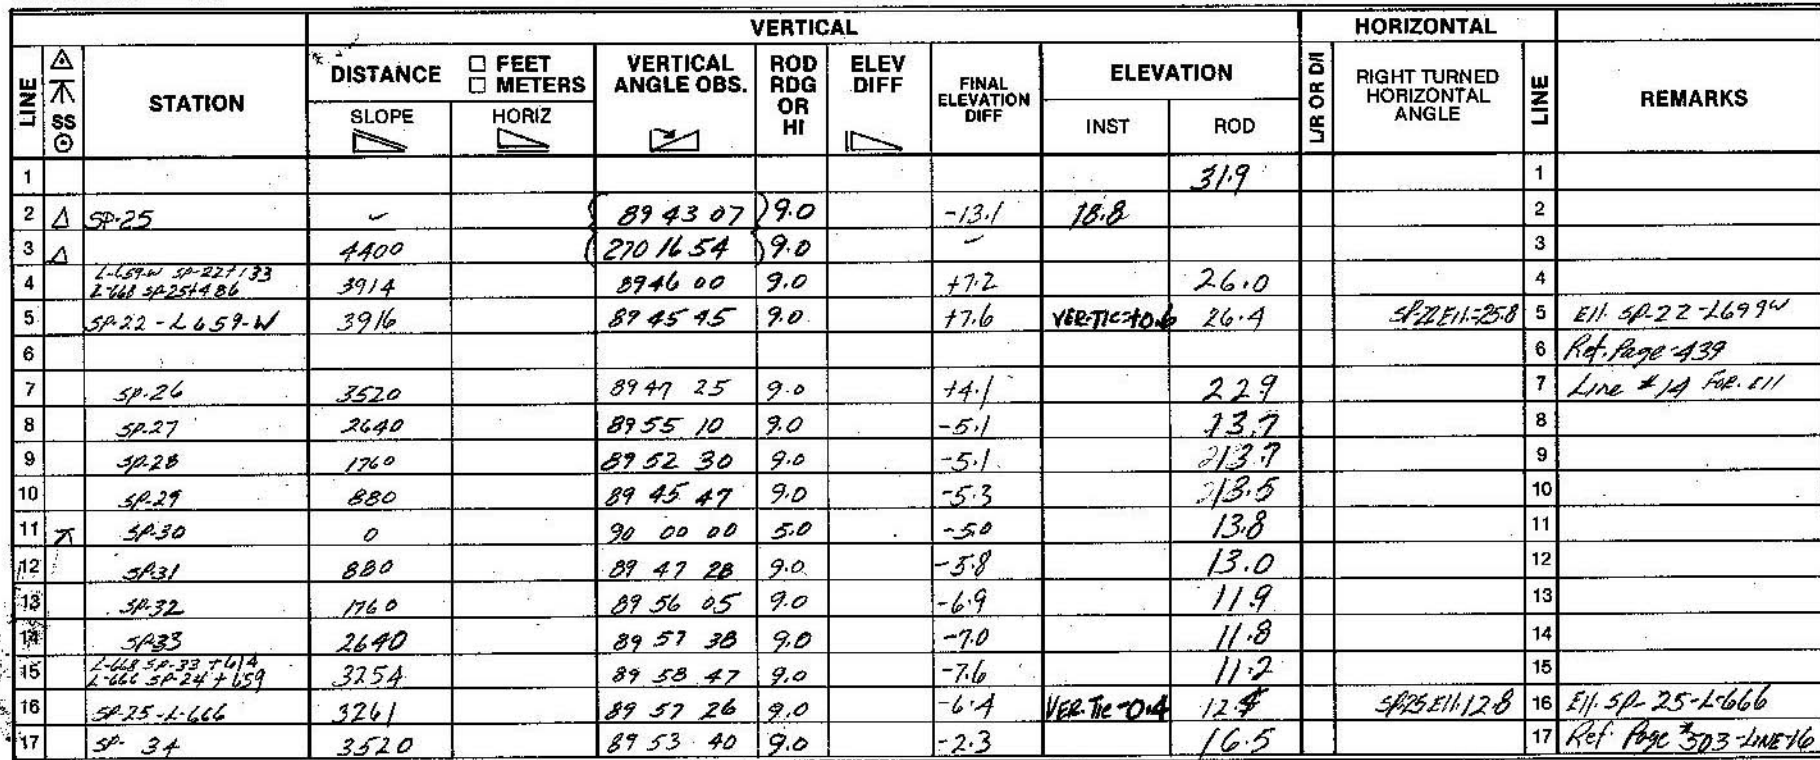 VERTICAL HORIZONTAL
LINE SS STATION DISTANCE FEET METERS VERTICAL ANGLE OBS. ROD RDG OR HI ELEV DIFF FINAL ELEVATION DIFF ELEVATION L/R OR D/I RIGHT TURNED HORIZONTAL ANGLE LINE REMARKS
SLOPE HORIZ INST ROD
1 31.9 1
2 Δ SP-25 89 43 07 9.0 -13.1 18.8 2
3 Δ 4400 270 16 54 9.0 3
L-659-W SP-22+133
4 L-668 SP-25+486 3914 89 46 00 9.0 +7.2 26.0 4
5 SP-22-L659-W 3916 89 45 45 9.0 +7.6 VER-TIC=+0.6 26.4 SP.22 Ell.=25.8 5 Ell. SP-22-L699W
6 6 Ref. Page-439
7 SP-26 3520 89 47 25 9.0 +4.1 22.9 7 Line #14 FOR. Ell
8 SP-27 2640 89 55 10 9.0 -5.1 13.7 8
9 SP-28 1760 89 52 30 9.0 -5.1 13.7 9
10 SP-29 880 89 45 47 9.0 -5.3 13.5 10
11 SP-30 0 90 00 00 5.0 -5.0 13.8 11
12 SP-31 880 89 47 28 9.0 -5.8 13.0 12
13 SP-32 1760 89 56 05 9.0 -6.9 11.9 13
14 SP-33 2640 89 57 38 9.0 -7.0 11.8 14
L-668 SP-33+614
15 L-666 SP-24+659 3254 89 58 47 9.0 -7.6 11.2 15
16 SP-25-L-666 3261 89 57 26 9.0 -6.4 VER. Tie-0.4 12.4 SP.25 Ell.12.8 16 Ell. SP-25-L-666
17 SP-34 3520 89 53 40 9.0 -2.3 16.5 17 Ref. Page #503-LINE-16